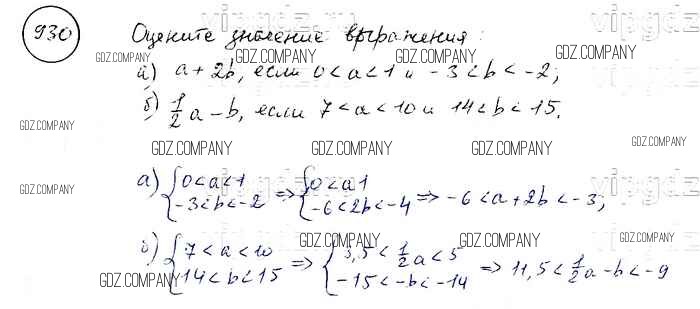 930 Оцените значение выражения:
а) a + 2b, если 0 < a < 1 и -3 < b < -2;
б) 1/2 a - b, если 7 < a < 10 и 14 < b < 15.
а) { 0 < a < 1 => { 0 < a 1
-3 < b < -2 -6 < 2b < -4 => -6 < a + 2b < -3;
б) { 7 < a < 10 => { 3,5 < 1/2 a < 5
14 < b < 15 -15 < -b < -14 => 11,5 < 1/2 a - b < -9
GDZ.COMPANY
GDZ.COMPANY
GDZ.COMPANY
GDZ.COMPANY
GDZ.COMPANY
GDZ.COMPANY
GDZ.COMPANY
GDZ.COMPANY
GDZ.COMPANY
GDZ.COMPANY
GDZ.COMPANY
GDZ.COMPANY
GDZ.COMPANY
vipgdz.ru
vipgdz.ru